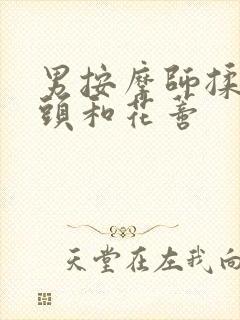 男按摩師揉
頭和花蕾
天堂在左我向